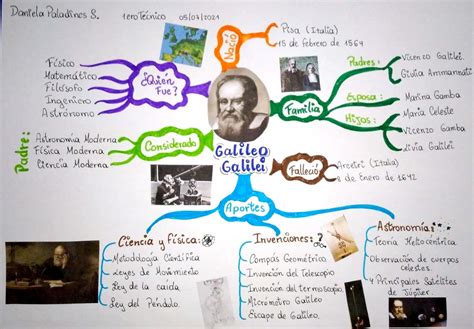 Daniela Paladines S.
1ero Técnico
05/07/2021
Nació
Pisa (Italia)
15 de febrero de 1564
¿Quién Fue?
Físico
Matemático
Filósofo
Ingeniero
Astrónomo
Familia
Padres:
Vicenzo Galilei
Giulia Ammannati
Esposa:
Marina Gamba
Hijos:
María Celeste
Vicenzo Gamba
Livia Galilei
Considerado
Padre:
Astronomía Moderna
Física Moderna
Ciencia Moderna
Galileo
Galilei
Falleció
Arcetri (Italia)
8 de Enero de 1642
Aportes
Ciencia y Física:
Metodología Científica
Leyes de Movimiento
Ley de la caída
Ley del Péndulo.
Invenciones:
Compás Geométrico
Invención del Telescopio
Invención del termoscopio
Micrómetro Galileo
Escape de Galileo.
Astronomía:
Teoría Heliocéntrica
Observación de cuerpos
celestes.
4 Principales Satélites
de Júpiter.